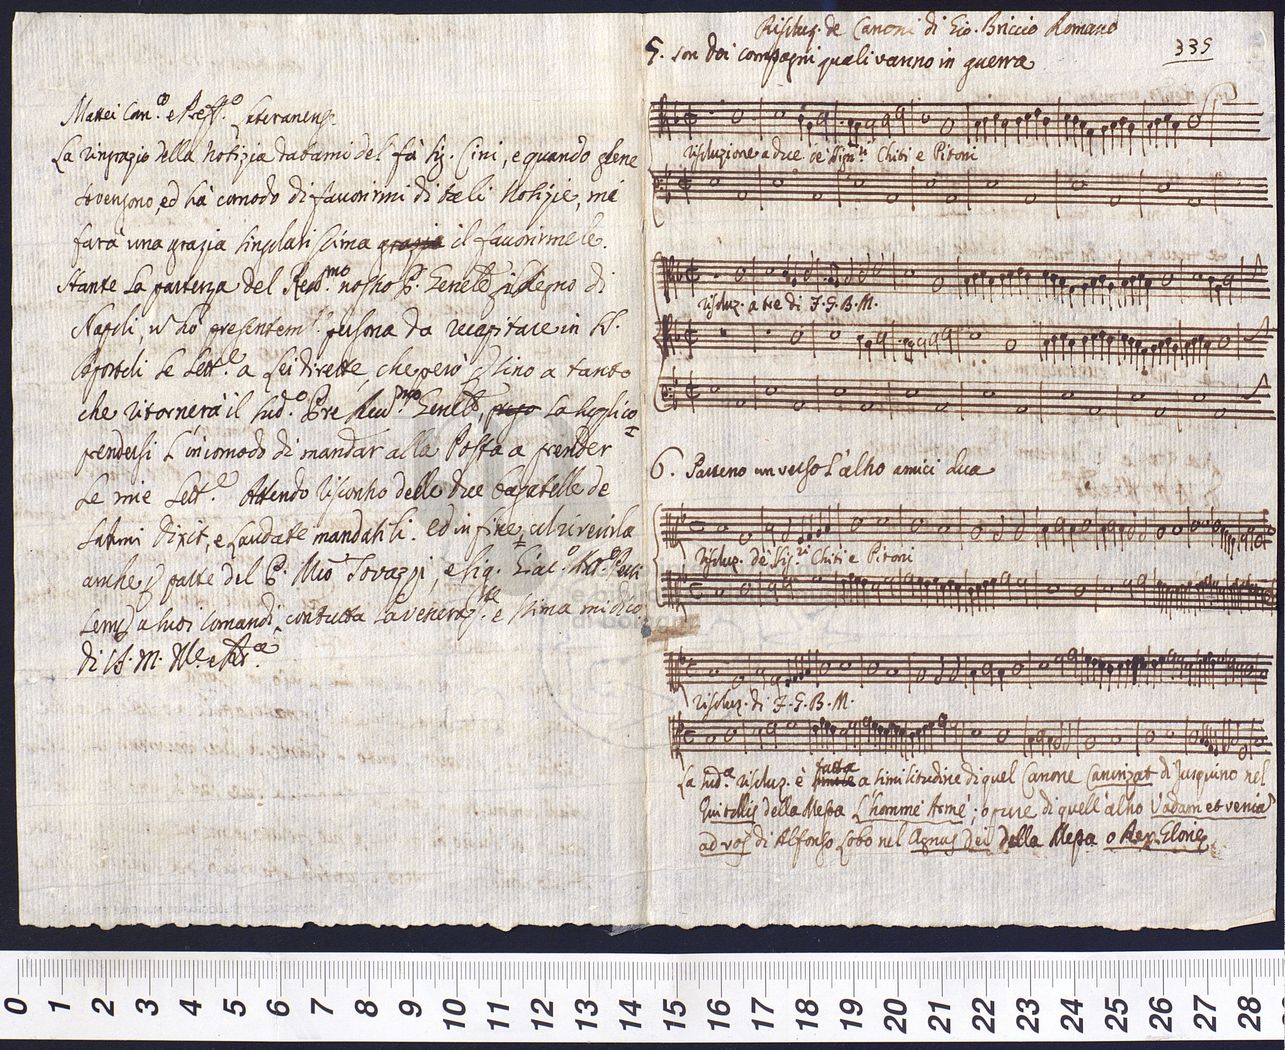 Mattei Can.co e Lateranens.
La ringrazio della notizia datami del fù Sig. Cini, e quando gliene
sovengono, ed hà comodo di favorirmi di tali notizie, mi
farà una grazia singularissima grazia il favorirmele.
Stante la partenza del Rev.mo nostro P. Zenelli in Regno di
Napoli, nō hò presentem.e persona da recapitare in SS.
Apostoli le Lett.e a Lei dirette, che però sino a tanto
che ritornerà il sud.o Pre Rev.mo Zenelli, prego la suplico
prendersi l'incomodo di mandar alla Posta a prender
le mie Lett.e Attendo riscontro delle due bagatelle de
Salmi Dixit, e Laudate mandatili. ed in fine col riverirla
anche p parte del P. Mro Tovazzi, e Sig. Giac.o Ant.o Perti
a suoi comandi, con tutta la veneraz. e stima mi dico
di V.S. M. Ill.e e Rev.
Risoluz. de Canoni di Gio. Briccio Romano
335
5. son doi compagni quali vanno in guerra
risoluzione a due de Sign.ri Chiti e Pitoni
risoluz. a tre di F. G. B. M.
6. Patteno un verso l'altro amici dua
Risoluz. de Sig.ri Chiti e Pitoni
risoluz. di F. G. B. M.
La sud.a risoluz. è fatta a similitudine di quel Canone Cancrizat di Jusquino nel
Qui tollis della Messa L'homme Armè; o pure di quell'altro Vadam et venia
ad vos di Alfonso Lobo nel Agnus Dei della Messa o Rex Glorie
0 1 2 3 4 5 6 7 8 9 10 11 12 13 14 15 16 17 18 19 20 21 22 23 24 25 26 27 28